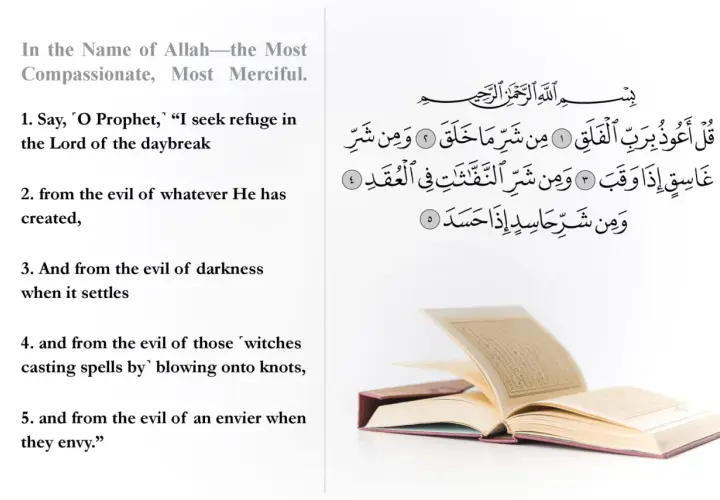 In the Name of Allah—the Most
Compassionate, Most Merciful.
1. Say, ˹O Prophet,˺ “I seek refuge in
the Lord of the daybreak
2. from the evil of whatever He has
created,
3. And from the evil of darkness
when it settles
4. and from the evil of those ˹witches
casting spells by˺ blowing onto knots,
5. and from the evil of an envier when
they envy.”
بِسْمِ اللَّهِ الرَّحْمَٰنِ الرَّحِيمِ
قُلْ أَعُوذُ بِرَبِّ ٱلْفَلَقِ ١ مِن شَرِّ مَا خَلَقَ ٢ وَمِن شَرِّ
غَاسِقٍ إِذَا وَقَبَ ٣ وَمِن شَرِّ ٱلنَّفَّٰثَٰتِ فِي ٱلْعُقَدِ ٤
وَمِن شَرِّ حَاسِدٍ إِذَا حَسَدَ ٥